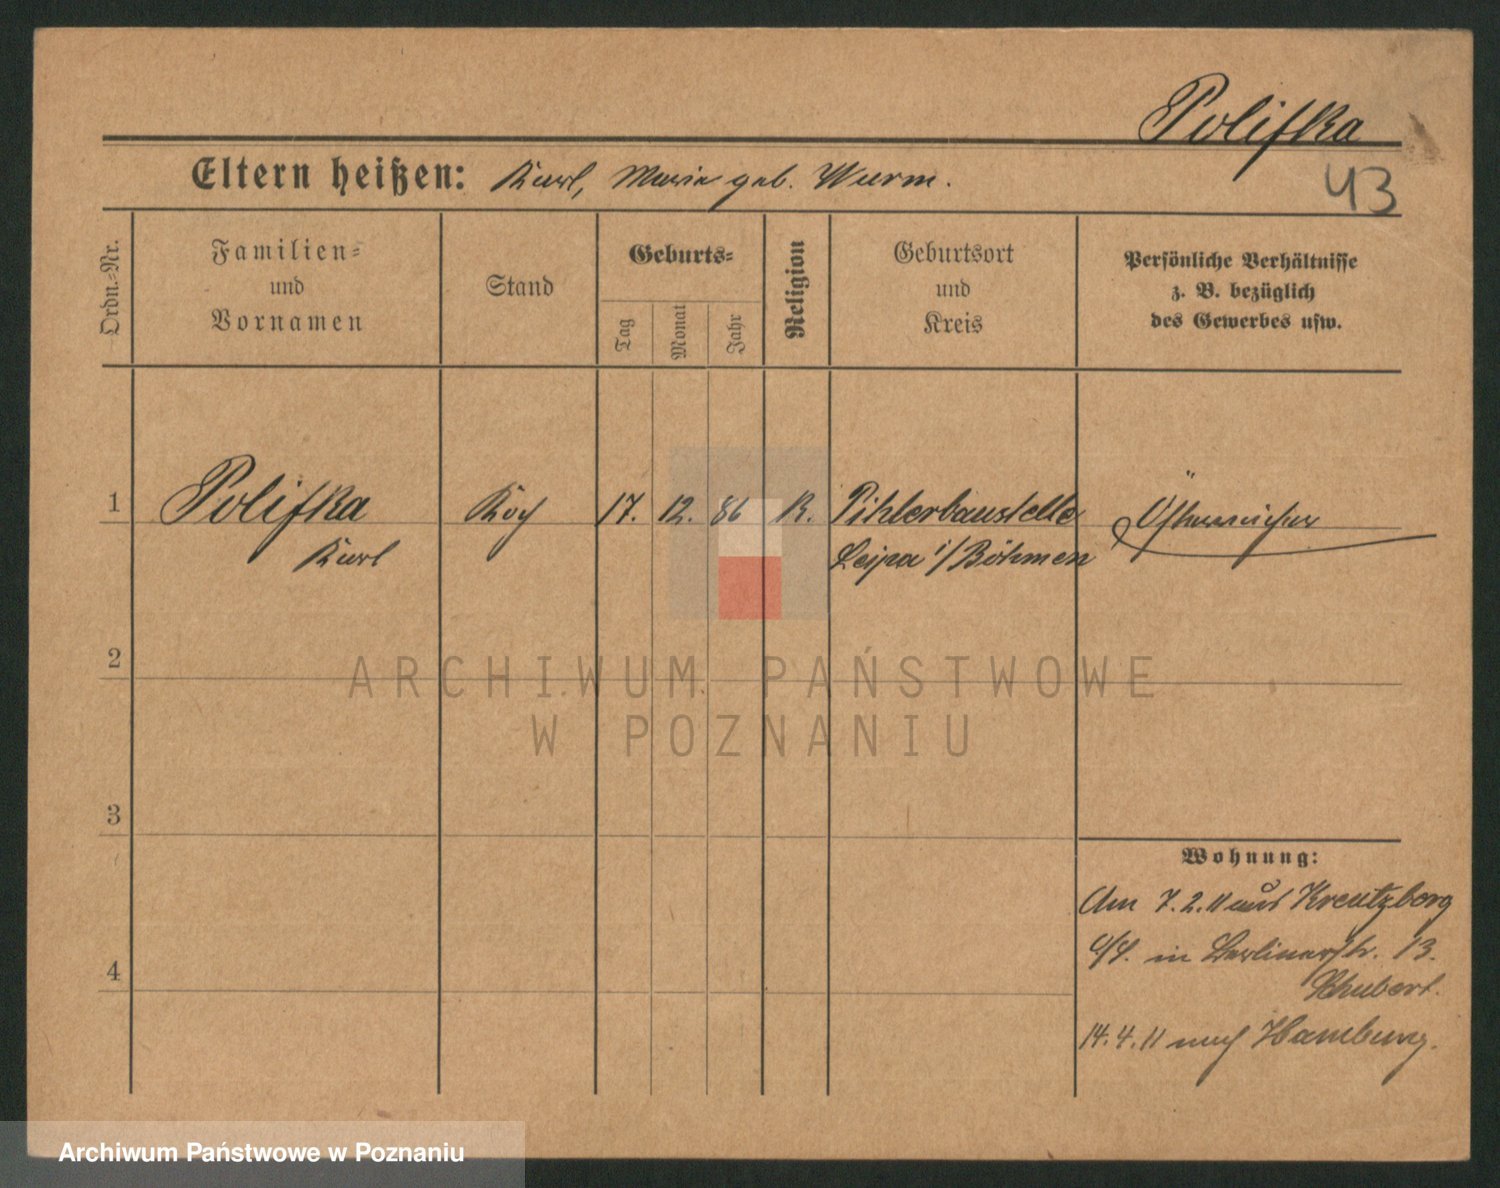 Polifka
43
Eltern heißen: Karl, Marie geb. Wurm.
Ordn.-Nr.
Familien-
und
Vornamen
Stand
Geburts-
Tag
Monat
Jahr
Religion
Geburtsort
und
Kreis
Persönliche Verhältnisse
z. B. bezüglich
des Gewerbes usw.
1 Polifka Koch 17. 12. 86 K. Pihlerbaustelle Östereicher
Karl Leipa i/Böhmen
2
3
4
Wohnung:
Am 7.2.11 aus Kreutzberg
O/S. in Berlinerstr. 13.
Schubert.
14.4.11 nach Hamburg.
ARCHIWUM PAŃSTWOWE
W POZNANIU
Archiwum Państwowe w Poznaniu